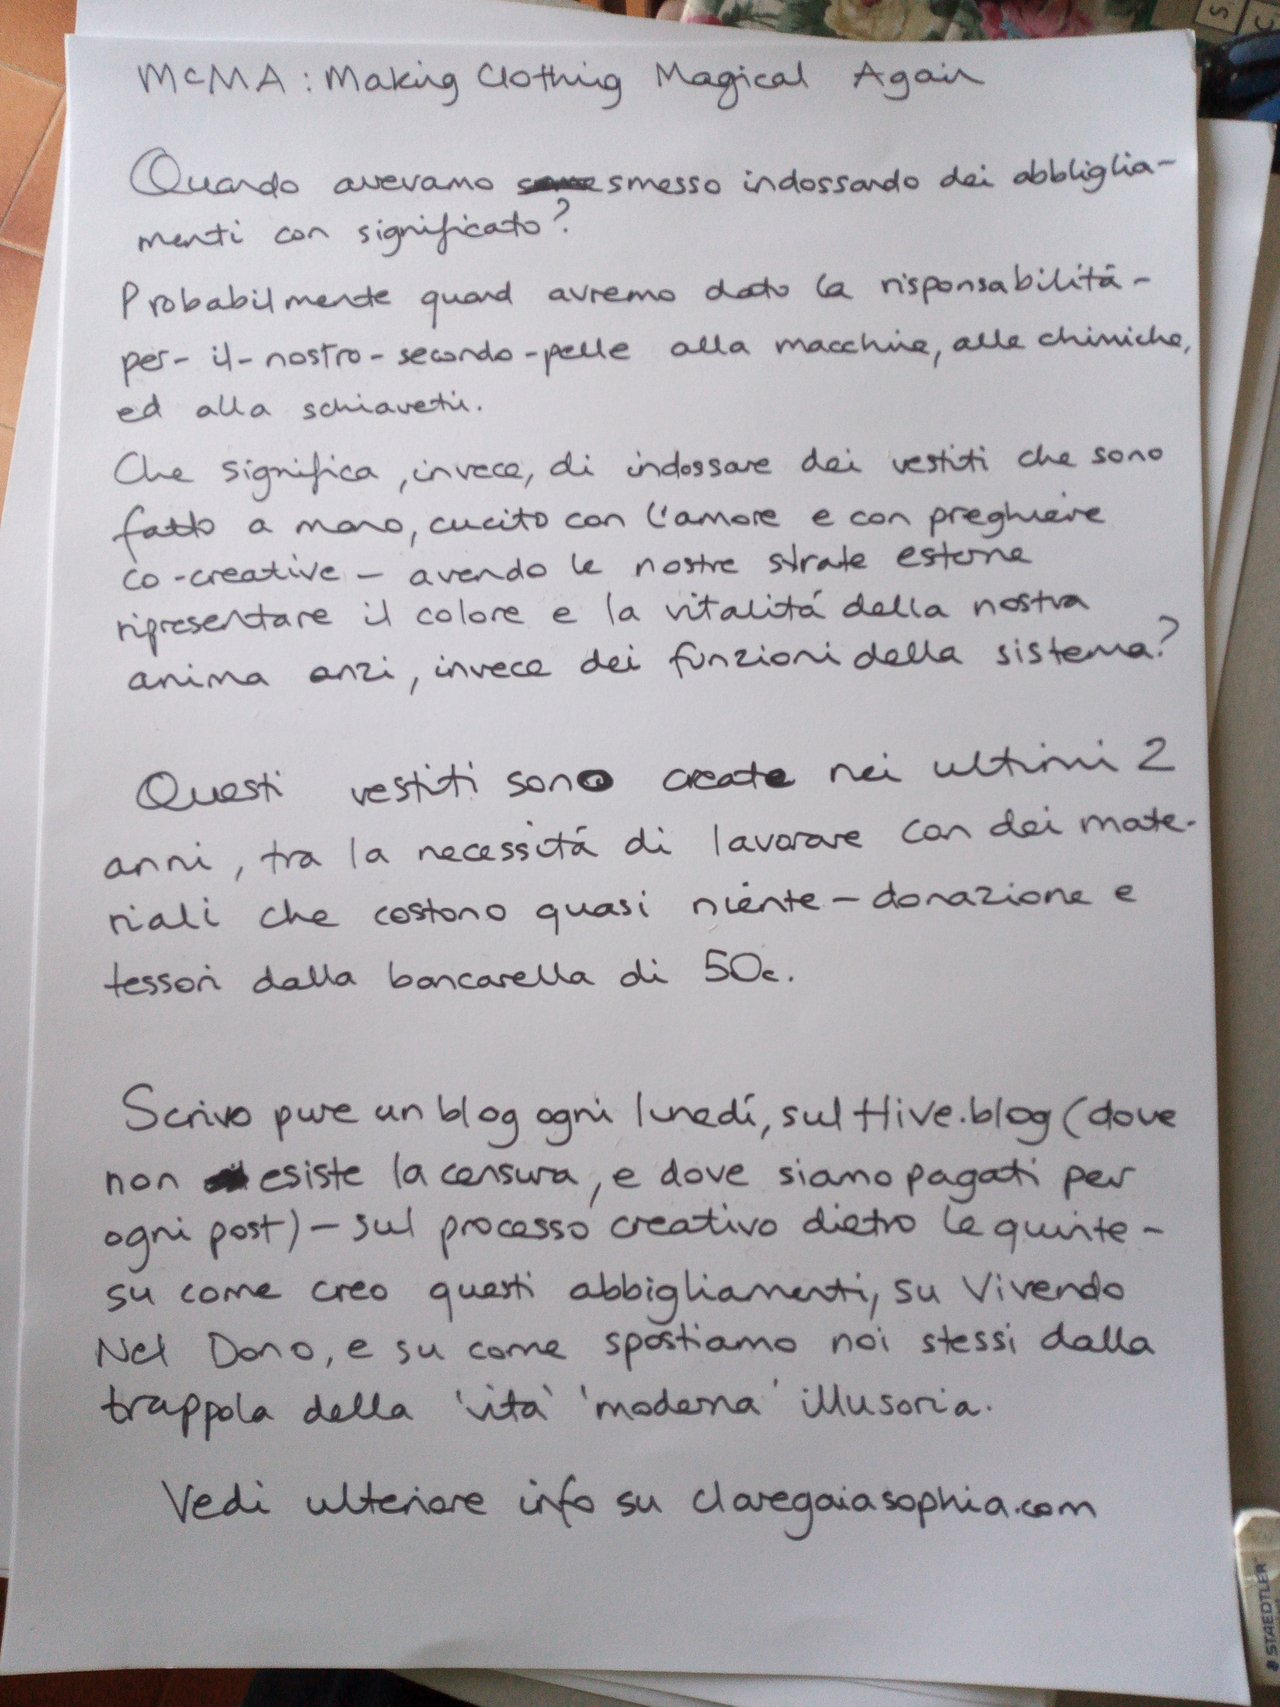 McMA: Making Clothing Magical Again
Quando avevamo smesso indossando dei abbliglia-
menti con significato?
Probabilmente quand avremo dato la risponsabilitá-
per-il-nostro-secondo-pelle alla macchine, alle chimiche,
ed alla schiavetú.
Che significa, invece, di indossare dei vestiti che sono
fatto a mano, cucito con l'amore e con preghiere
co-creative - avendo le nostre strate esterne
ripresentare il colore e la vitalitá della nostra
anima anzi, invece dei funzioni della sistema?
Questi vestiti sono create nei ultimi 2
anni, tra la necessitá di lavorare con dei mate-
riali che costono quasi niente - donazione e
tessori dalla bancarella di 50c.
Scrivo pure un blog ogni lunedí, sul Hive.blog (dove
non esiste la censura, e dove siamo pagati per
ogni post) - sul processo creativo dietro le quinte -
su come creo questi abbigliamenti, su Vivendo
Nel Dono, e su come spostiamo noi stessi dalla
trappola della 'vita' 'moderna' illusoria.
Vedi ulteriore info su claregaiasophia.com
S
C
STAEDTLER